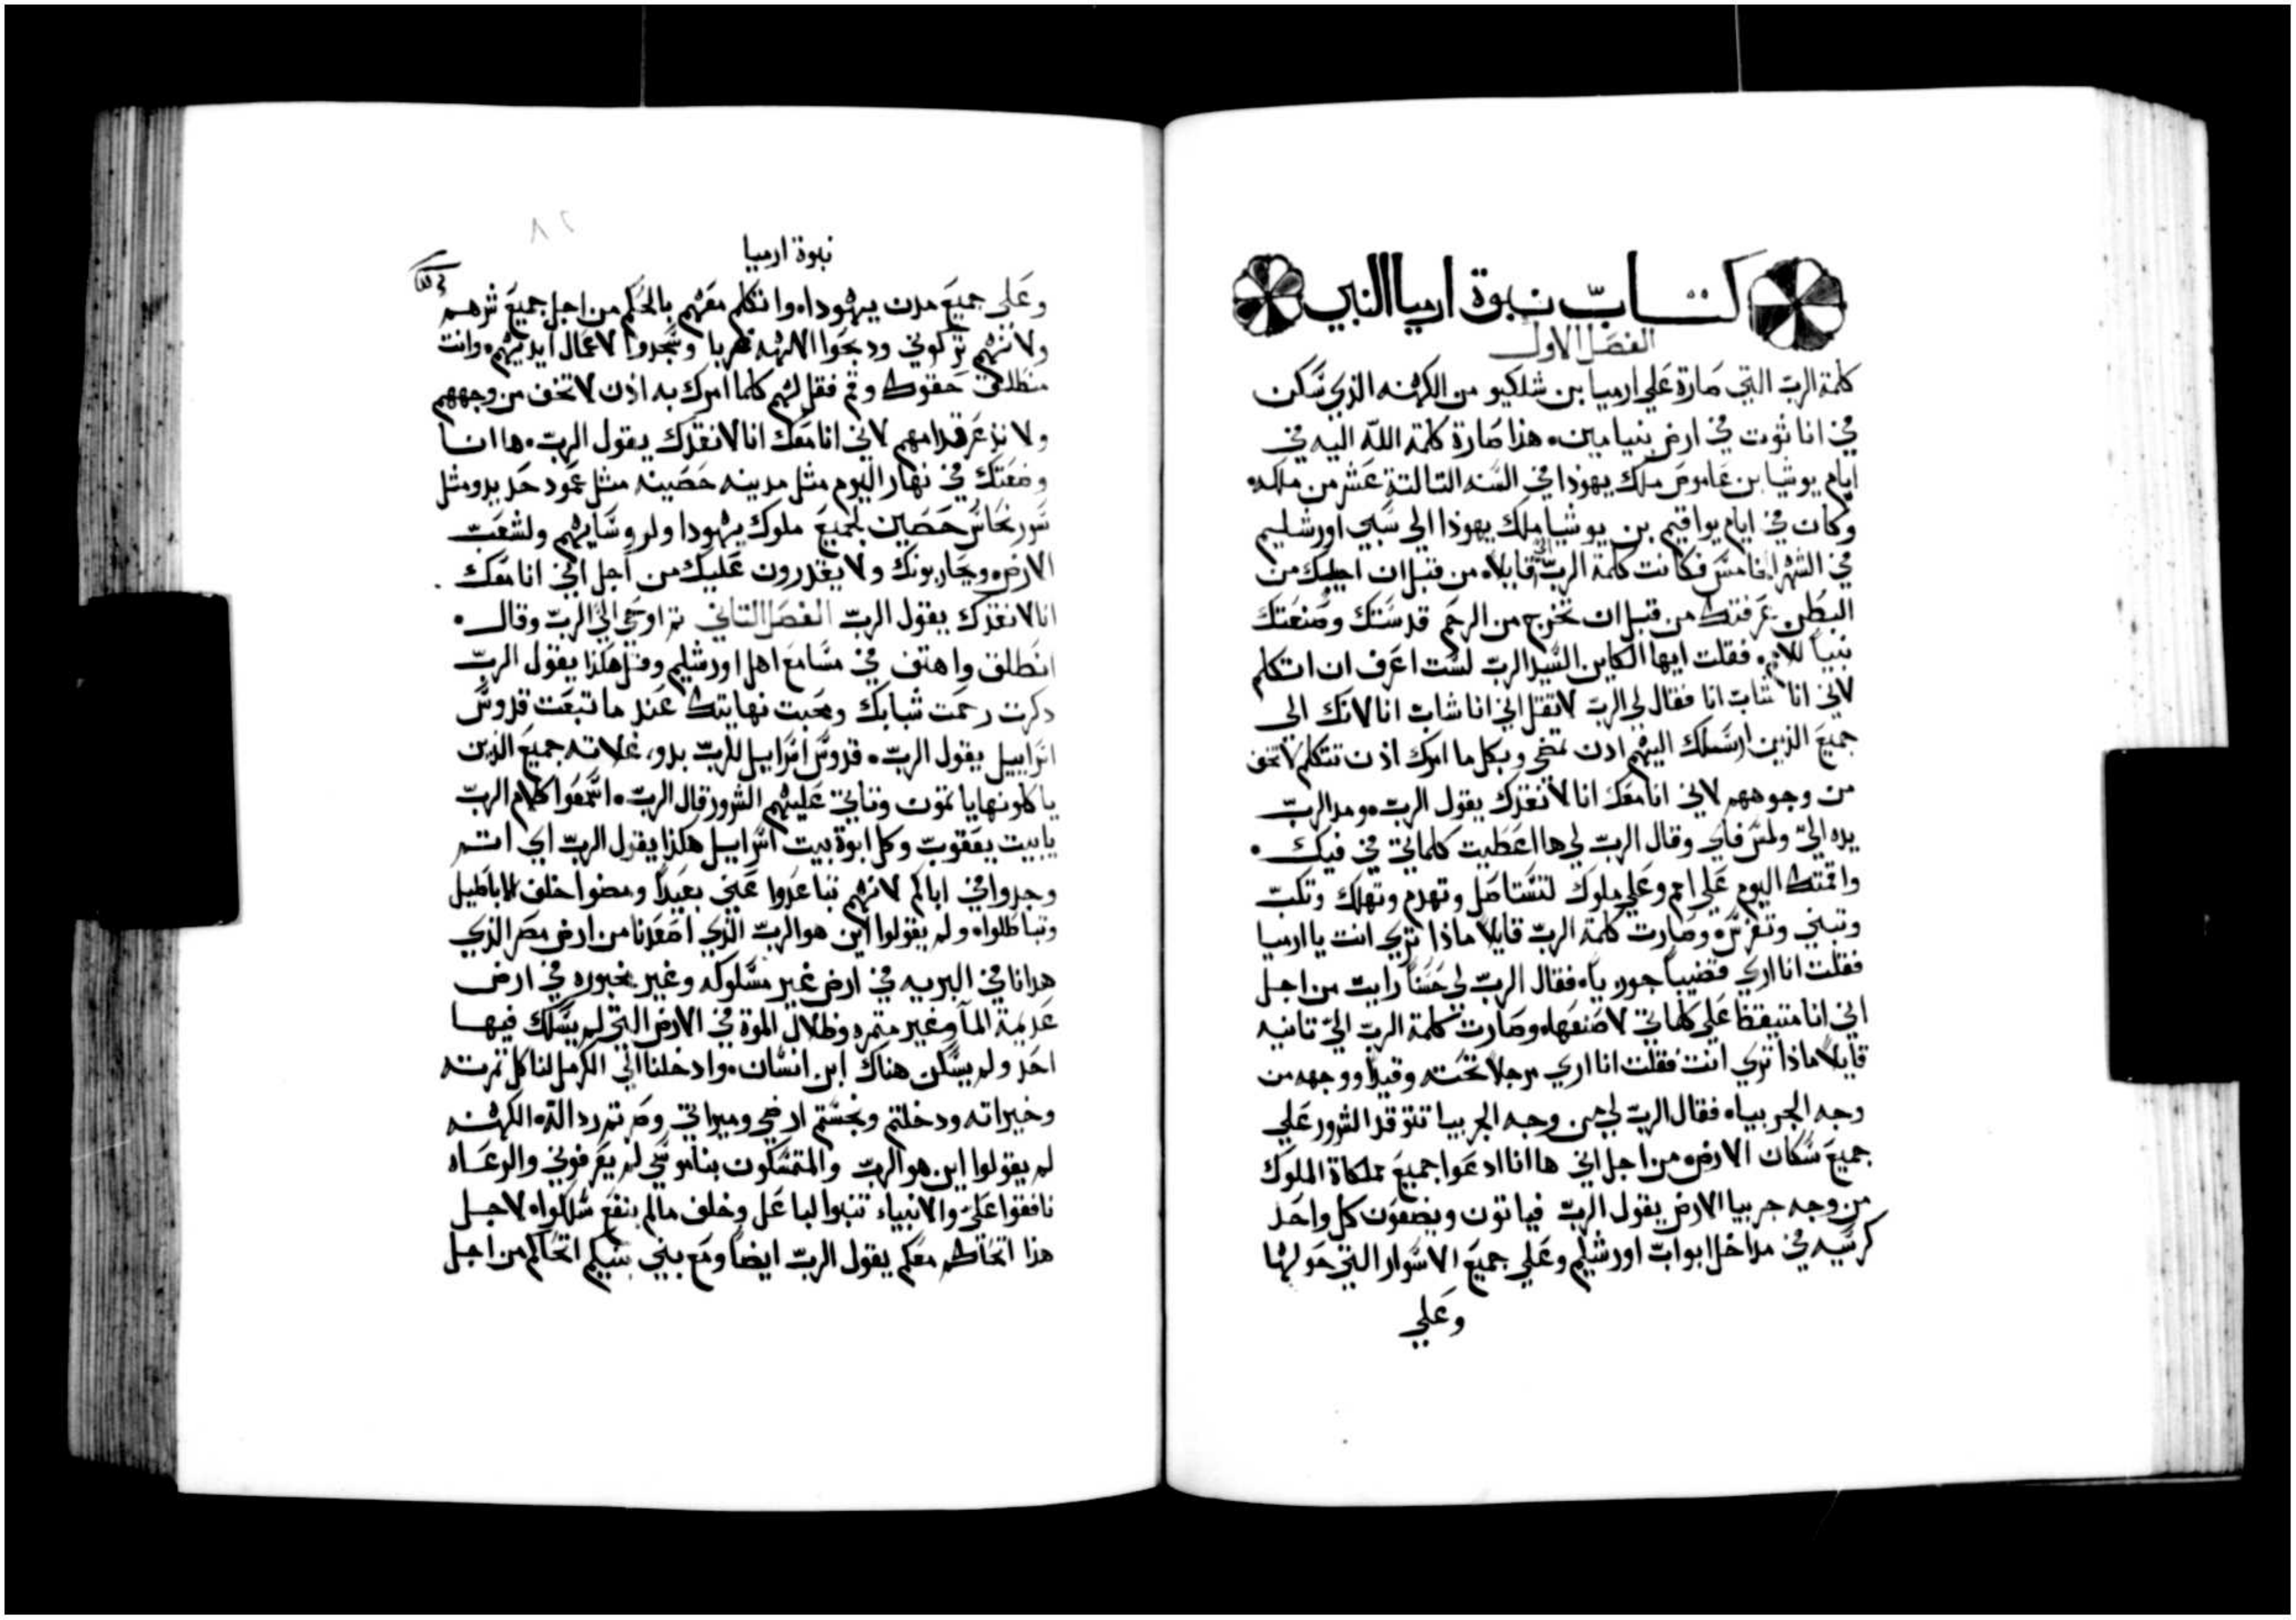 كتاب نبوة ارميا النبي
الفصل الاول
كلمة الربّ التي صارة علي ارميا بن شلكيو من الكهنه الذي سكن
في اناثوت في ارض بنيامين. هذا صارة كلمة اللّه اليه في
ايام يوشيا بن عاموص ملك يهوذا في السنه التالتة عشر من ملكه.
وكان في ايام يواقيم بن يوشيا ملك يهوذا الي سبي اورشليم
في الشهر الخامس فكانت كلمة الربّ اليّ قايلاً. من قبل ان اجبلك من
البطن عرفتك من قبل ان تخرج من الرحم قدستك وصنعتك
نبياً للامم. فقلت ايها الكاين السيد الربّ لست اعرف ان اتكلم
لاني انا شابّ انا فقال لي الربّ لا تقل اني انا شابّ انا لانك الي
جميع الذين ارسلك اليهم اذن تمضي وبكل ما امرك اذن تتكلم لا تخف
من وجوههم لاني انا معك انا لانقذك يقول الربّ. ومد الربّ
يده اليّ ولمس فاي وقال الربّ لي ها اعطيت كلماتي في فيك.
واقمتك اليوم علي امم وعلي ملوك لتستاصل وتهدم وتهلك وتكبّ
وتبني وتغرس. وصارت كلمة الربّ قايلاً ماذا تري انت يا ارميا
فقلت انا اري قضيباً جوزياً. فقال الربّ لي حسناً رايت من اجل
اني انا متيقظا علي كلماتي لاصنعها. وصارت كلمة الربّ اليّ تانيه
قايلاً ماذا تري انت فقلت انا اري مرجلاً تحته وقيداً ووجهه من
وجه الجربيا. فقال الربّ لي من وجه الجربيا تتوقد الشرور علي
جميع سكان الارض. من اجل اني ها انا ادعوا جميع مملكاة الملوك
من وجه جربيا الارض يقول الربّ فياتون ويضعون كل واحد
كرسيه في مداخل ابوابّ اورشليم وعلي جميع الاسوار التي حولها
وعلي
نبوة ارميا
وعلي جميع مدن يهودا. واتكلم معهم بالحكم من اجل جميع شرهم
ولانهم تركوني ودبحوا لالهه غربا وسجدوا لاعمال ايديهم. وانت
منطلق حقوك وقم فقل لهم كلما امرك به اذن لا تخف من وجههم
ولا تذعر قدامهم لاني انا معك انا لانقذك يقول الربّ. ها انا
وضعتك في نهار اليوم مثل مدينه حصينه مثل عمود حديد ومثل
سور نحاس حصين لجميع ملوك يهودا ولروسايهم ولشعبّ
الارض. ويحاربونك ولا يقدرون عليك من اجل اني انا معك
انا لانقذك يقول الربّ الفصل التاني ثم اوحي اليّ الربّ وقال.
انطلق واهتف في مسامع اهل اورشليم وقل هكذا يقول الربّ
دكرت رحمت شبابك ومحبت نهايتك عند ما تبعت قدوس
اسراييل يقول الربّ. قدوس اسراييل للربّ بدو غلاته جميع الذين
ياكلونها ياتمون وتاتي عليهم الشرور قال الربّ. اسمعوا كلام الربّ
يا بيت يعقوبّ وكل ابوة بيت اسراييل هكذا يقول الربّ اي اتم
وجدوا في اباكم لانهم تباعدوا عني بعيداً ومضوا خلف الاباطيل
وتباطلوا. ولم يقولوا اين هو الربّ الذي اصعدنا من ارض مصر الذي
هدانا في البريه في ارض غير مسلوكه وغير مخبوره في ارض
عديمة المآ وغير متمره وظلال الموة في الارض التي لم يسلك فيها
احد ولم يسكن هناك ابن انسان. وادخلنا الي الكرمل لناكل تمرته
وخيراته ودخلتم ونجستم ارضي وميراتي وصرتم ردالة. الكهنه
لم يقولوا اين هو الربّ والمتمسكون بناموسي لم يعرفوني والرعاه
نافقوا عليّ والانبياء تنبوا لباعل وخلف مالم ينفع سلكوا. لاجل
هذا احاكم معكم يقول الربّ ايضاً ومع بني بنيكم احاكم من اجل